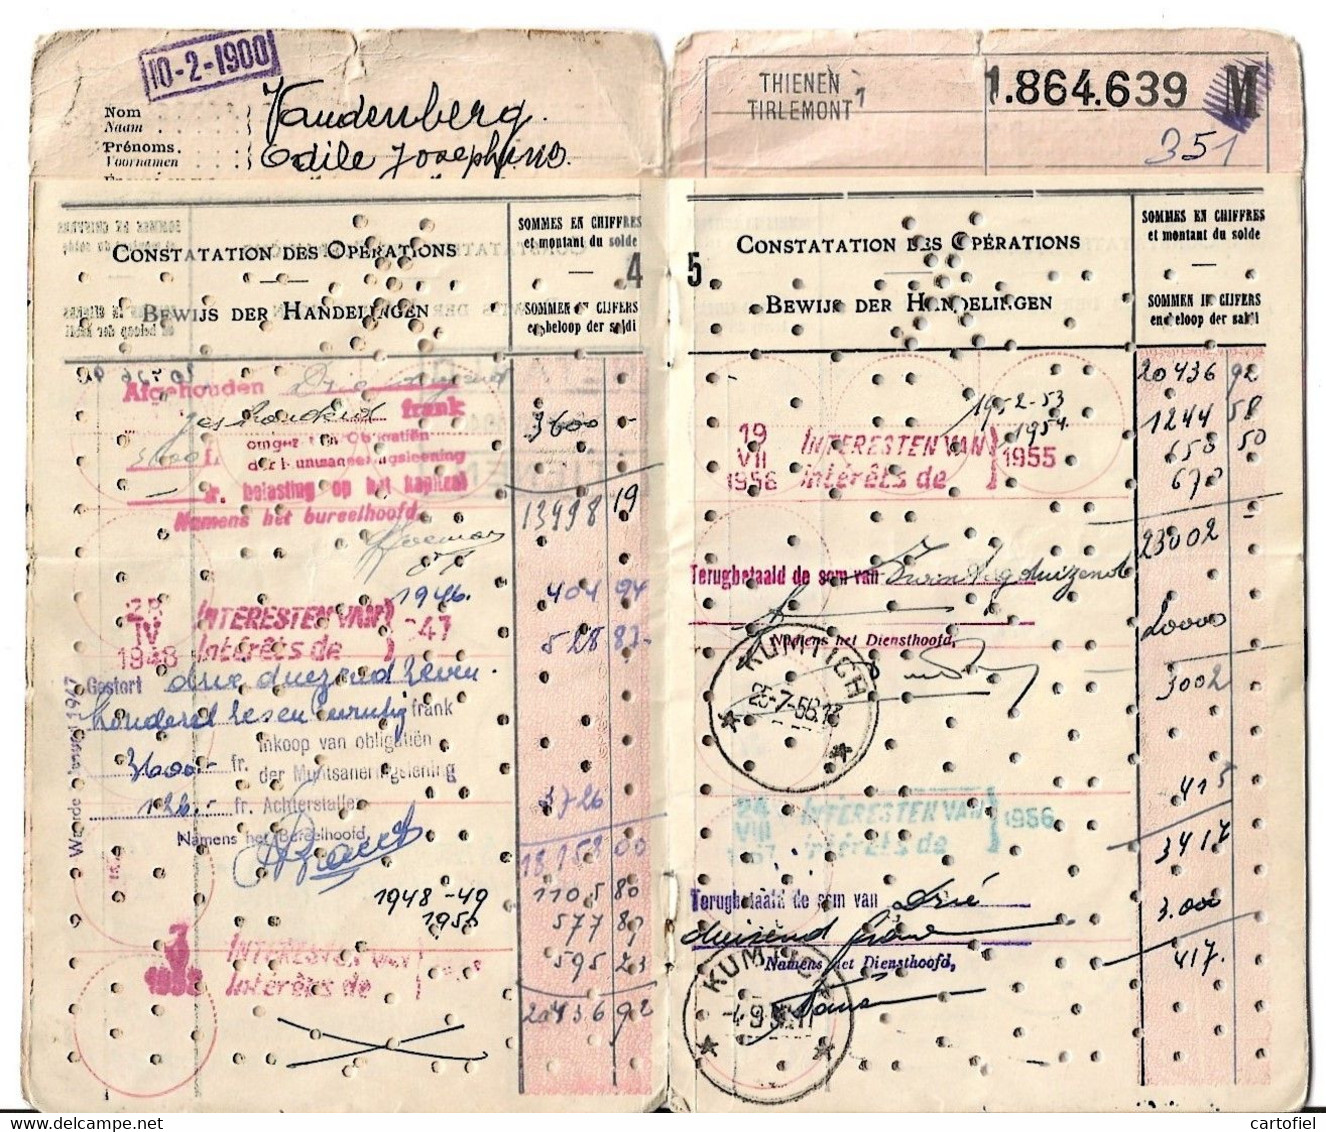 10-2-1900
Nom
Naam
Prénoms.
Voornamen
Vandenberg.
Odile Josephine.
THIENEN 1
TIRLEMONT
1.864.639 M
351
CONSTATATION DES OPÉRATIONS
BEWIJS DER HANDELINGEN
SOMMES EN CHIFFRES
et montant du solde
4
SOMMEN IN CIJFERS
en beloop der saldi
Afgehouden
frank
3600 fr.
3600 -
omgezet in Obligatiën
der Muntsaneeringsleening
fr. belasting op het kapitaal
Namens het bureelhoofd,
13998 19
1946.
INTERESTEN VAN } 47
Intérêts de
IV
1948
404 94
528 87
Gestort drie duizend zeven
honderd zesentwintig frank
Inkoop van obligatiën
3600.- fr. der Muntsaneringslening
126.- fr. Achterstallen
3726
Namens het Bureelhoofd,
18.158 00
1948-49
1950
1105 80
577 89
595 23
INTERESTEN VAN
Intérêts de
20436 92
5
CONSTATATION DES OPÉRATIONS
BEWIJS DER HANDELINGEN
SOMMES EN CHIFFRES
et montant du solde
SOMMEN IN CIJFERS
en beloop der saldi
20436 92
1952-53
1244 58
1954
658 50
19
VII
1956
INTERESTEN VAN } 1955
Intérêts de
678
23002 -
Terugbetaald de som van Twintig duizend
20000
Namens het Diensthoofd,
KUMTICH
25-7-56
3002
415
24
VIII
INTERESTEN VAN } 1956
Intérêts de
3417
Terugbetaald de som van Drie
duizend frank
3.000
Namens het Diensthoofd,
417.
KUMTICH
cartofiel